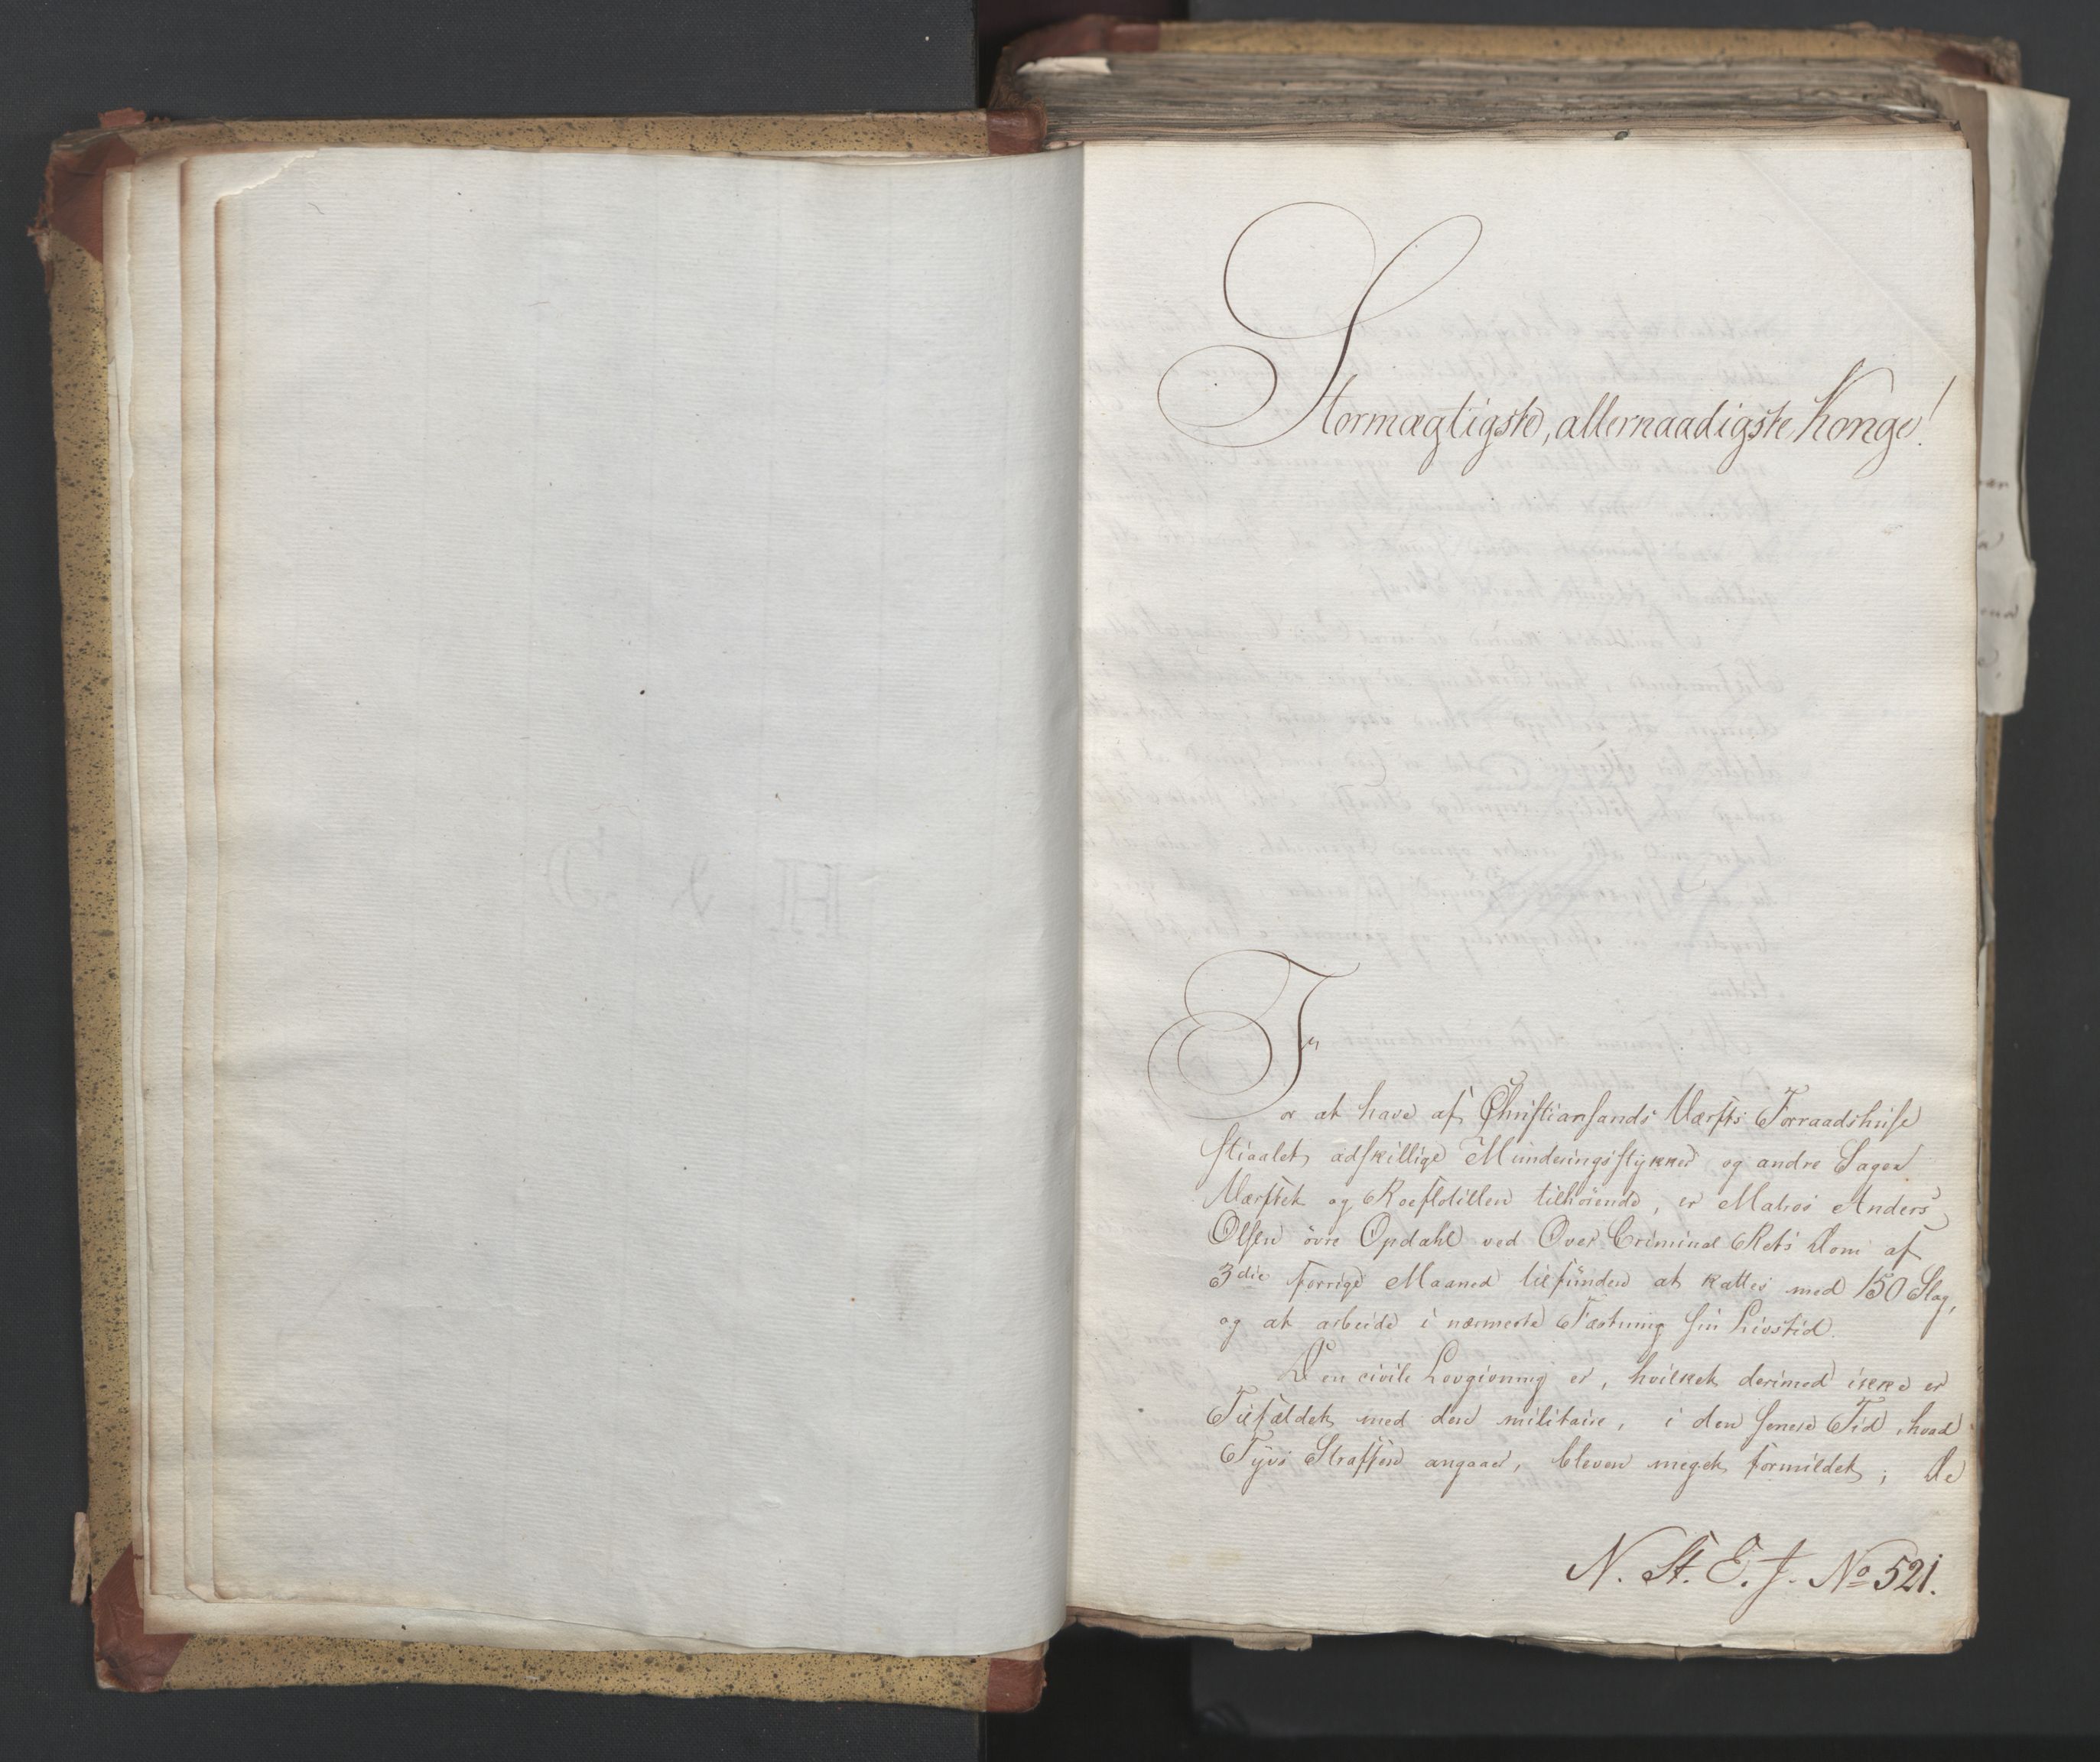 Stormægtigste, allernaadigste Konge!
For at have af Christiansands Værfts Forraadshuse
stiaalet adskillige Munderingsstykker og andre Sager
Værftet og Roeflotillen tilhörende, er Matros Anders
Olsen övre Opdahl ved Over Criminal Rets Dom af
3die forrige Maaned tilfunden at kattes med 150 Slag,
og at arbeide i nærmeste Fæstning sin Livstid.
Den civile Lovgivning er, hvilket derimod ikke er
Tilfældet med den militaire, i den senere Tid, hvad
Tyvs Straffen angaaer, bleven meget formildet; De
N. St. E. J. No 521.